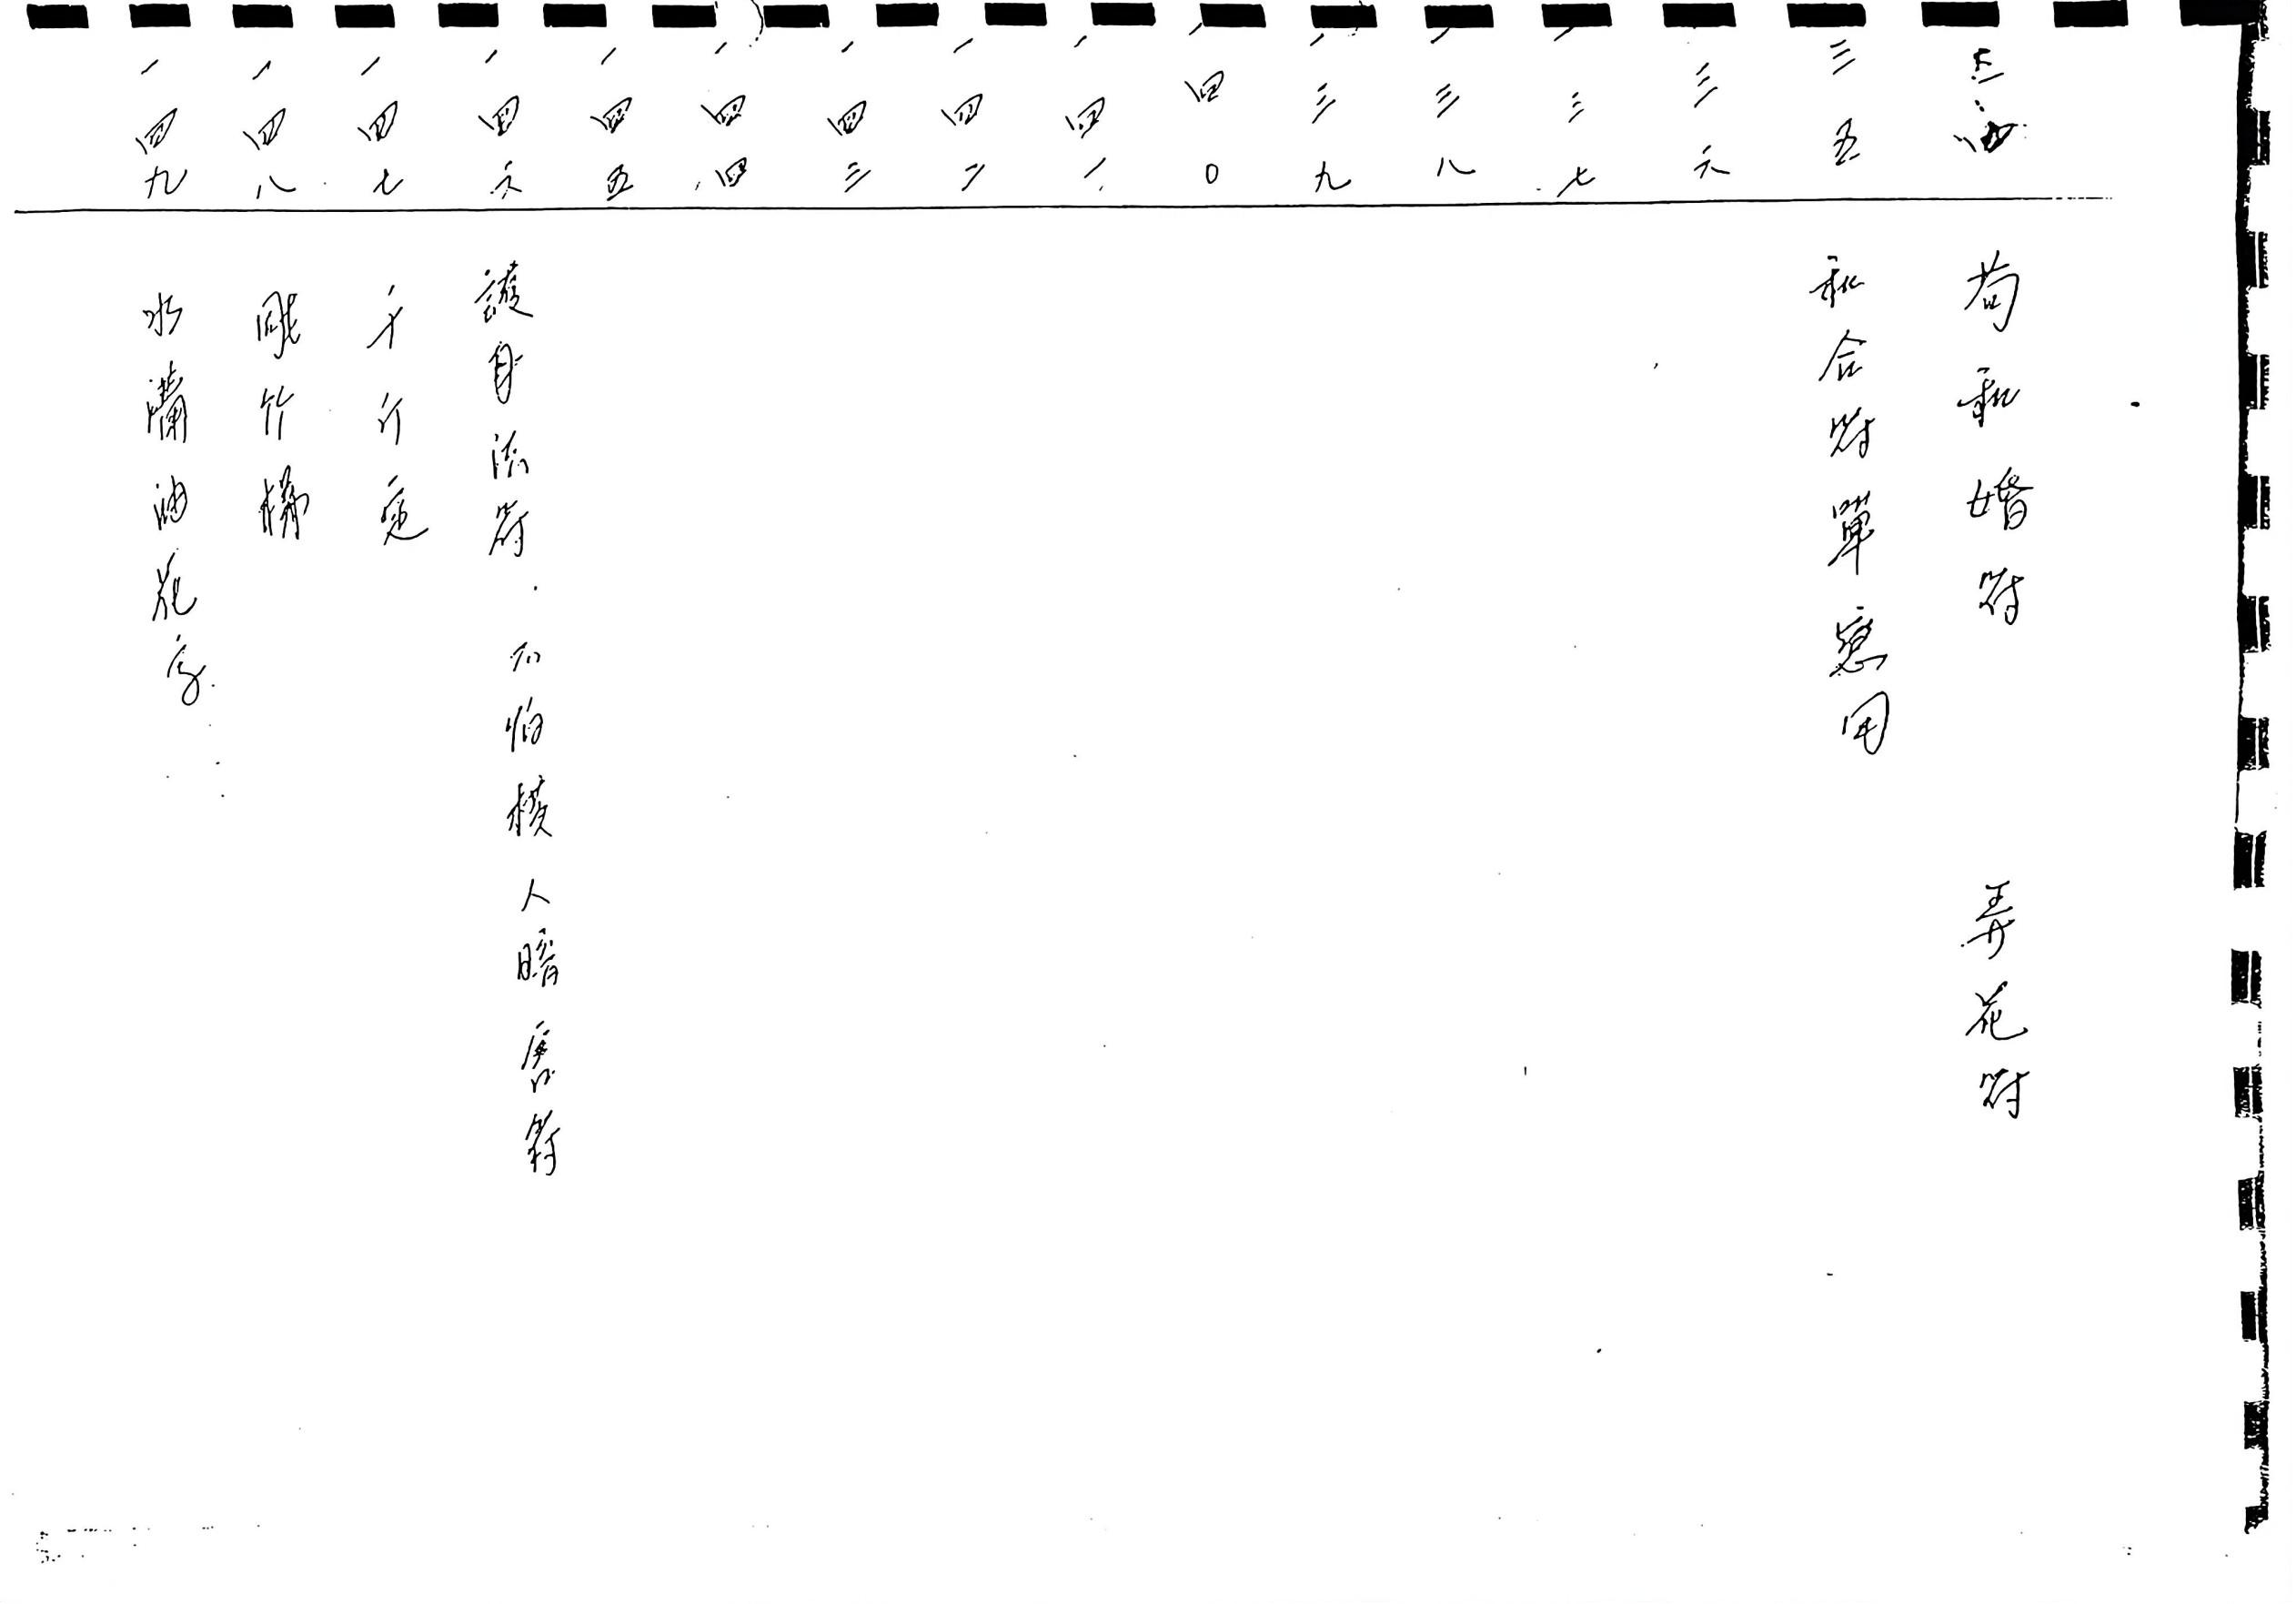 三四 和婚符 弄花符
三五 和合符單戀用
三六
一三七
一三八
一三九
一四〇
一四一
一四二
一四三
一四四
一四五
一四六 護身法符 不怕横人暗唐符
一四七 千斤
一四八 竹
一四九 水油花字